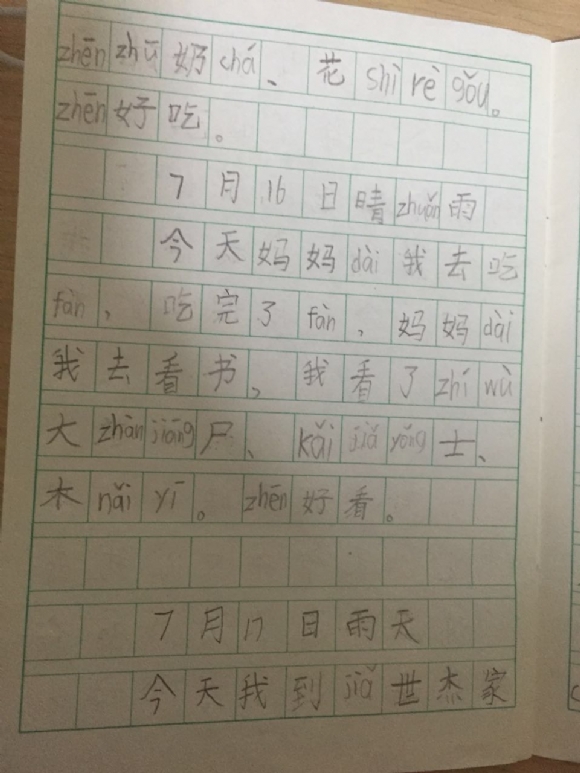 zhēn zhū 奶 chá、花 shì rè gǒu。
zhēn 好吃。
7月16日晴 zhuǎn 雨
今天妈妈 dài 我去吃
fàn，吃完了 fàn，妈妈 dài
我去看书，我看了 zhí wù
大 zhàn jiāng 尸、kǎi jiǎ yǒng 士、
木 nǎi yī。zhēn 好看。
7月17日雨天
今天我到 jiǎ 世杰家